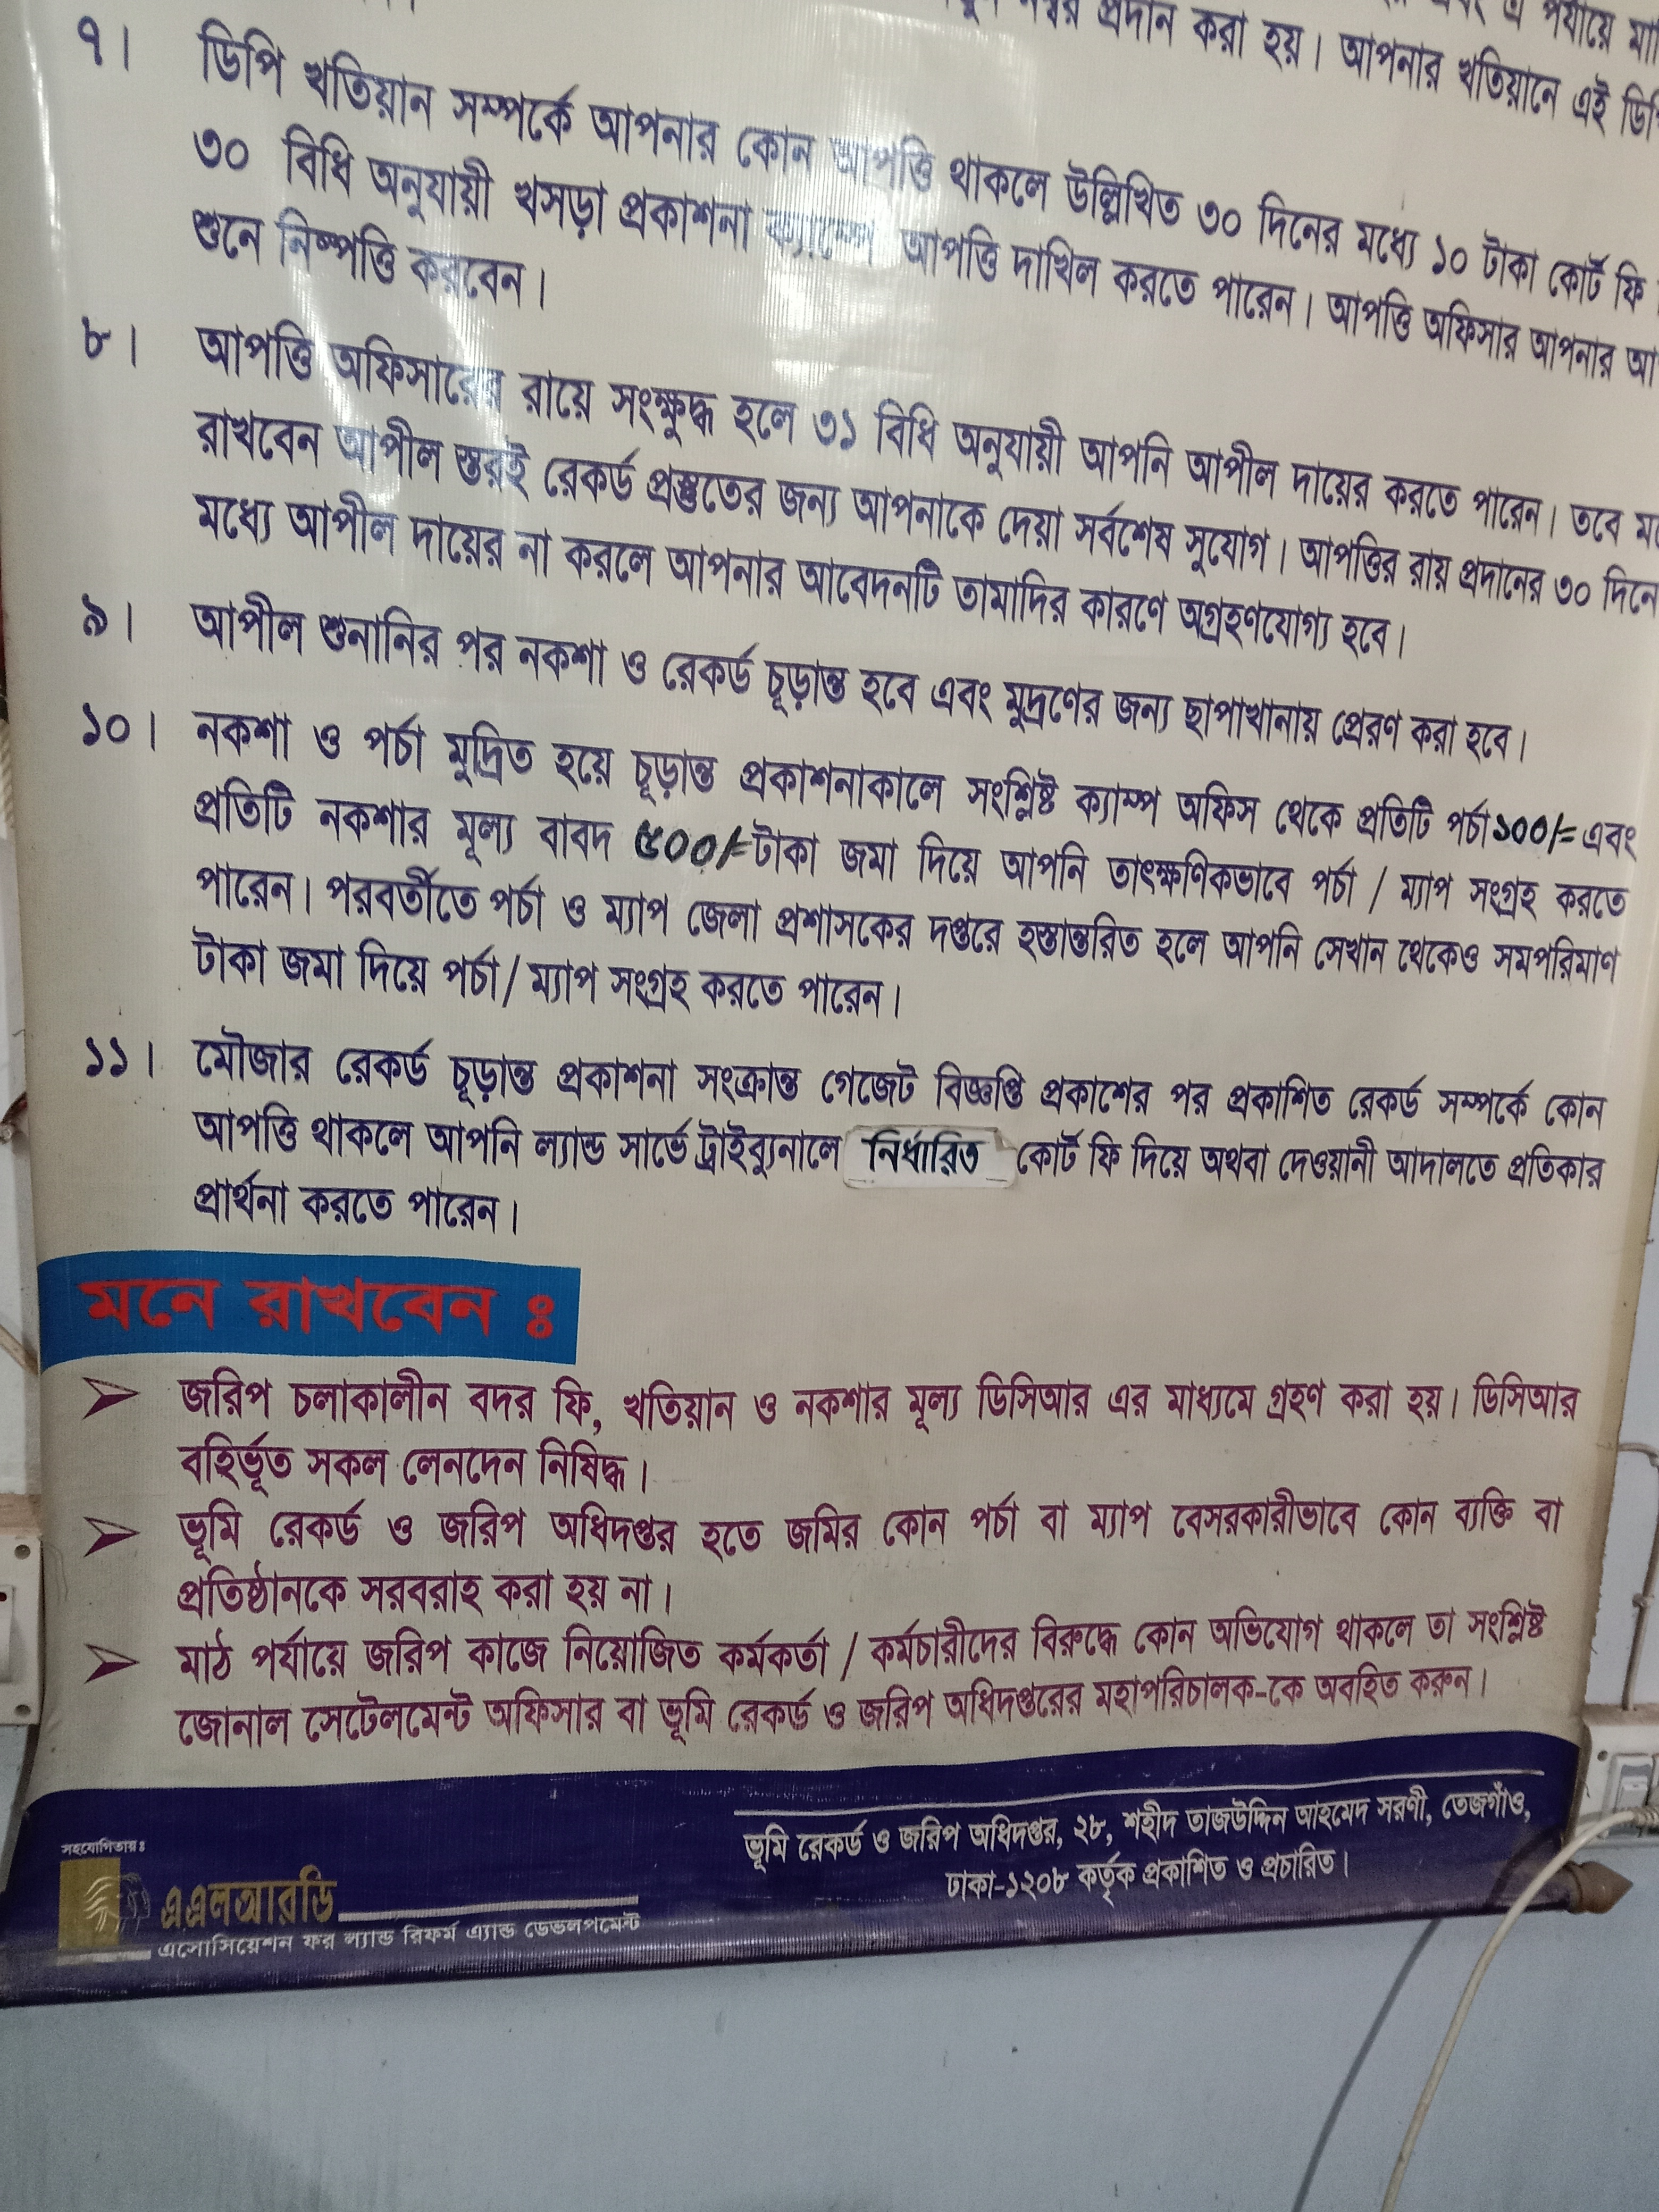 নম্বর প্রদান করা হয়। আপনার খতিয়ানে এই ডিপি
৭। ডিপি খতিয়ান সম্পর্কে আপনার কোন আপত্তি থাকলে উল্লিখিত ৩০ দিনের মধ্যে ১০ টাকা কোর্ট ফি
৩০ বিধি অনুযায়ী খসড়া প্রকাশনা ক্যাম্পে আপত্তি দাখিল করতে পারেন। আপত্তি অফিসার আপনার
শুনে নিষ্পত্তি করবেন।
৮। আপত্তি অফিসারের রায়ে সংক্ষুদ্ধ হলে ৩১ বিধি অনুযায়ী আপনি আপীল দায়ের করতে পারেন। তবে
রাখবেন আপীল স্তরই রেকর্ড প্রস্তুতের জন্য আপনাকে দেয়া সর্বশেষ সুযোগ। আপত্তির রায় প্রদানের ৩০ দিনে
মধ্যে আপীল দায়ের না করলে আপনার আবেদনটি তামাদির কারণে অগ্রহণযোগ্য হবে।
৯। আপীল শুনানির পর নকশা ও রেকর্ড চূড়ান্ত হবে এবং মুদ্রণের জন্য ছাপাখানায় প্রেরণ করা হবে।
১০। নকশা ও পর্চা মুদ্রিত হয়ে চূড়ান্ত প্রকাশনাকালে সংশ্লিষ্ট ক্যাম্প অফিস থেকে প্রতিটি পর্চা ১০০/= এবং
প্রতিটি নকশার মূল্য বাবদ ৫০০/= টাকা জমা দিয়ে আপনি তাৎক্ষণিকভাবে পর্চা / ম্যাপ সংগ্রহ করতে
পারেন। পরবর্তীতে পর্চা ও ম্যাপ জেলা প্রশাসকের দপ্তরে হস্তান্তরিত হলে আপনি সেখান থেকেও সমপরিমাণ
টাকা জমা দিয়ে পর্চা/ ম্যাপ সংগ্রহ করতে পারেন।
১১। মৌজার রেকর্ড চূড়ান্ত প্রকাশনা সংক্রান্ত গেজেট বিজ্ঞপ্তি প্রকাশের পর প্রকাশিত রেকর্ড সম্পর্কে কোন
আপত্তি থাকলে আপনি ল্যান্ড সার্ভে ট্রাইব্যুনালে নির্ধারিত কোর্ট ফি দিয়ে অথবা দেওয়ানী আদালতে প্রতিকার
প্রার্থনা করতে পারেন।
মনে রাখবেন ঃ
➢ জরিপ চলাকালীন বদর ফি, খতিয়ান ও নকশার মূল্য ডিসিআর এর মাধ্যমে গ্রহণ করা হয়। ডিসিআর
বহির্ভূত সকল লেনদেন নিষিদ্ধ।
➢ ভূমি রেকর্ড ও জরিপ অধিদপ্তর হতে জমির কোন পর্চা বা ম্যাপ বেসরকারীভাবে কোন ব্যক্তি বা
প্রতিষ্ঠানকে সরবরাহ করা হয় না।
➢ মাঠ পর্যায়ে জরিপ কাজে নিয়োজিত কর্মকর্তা / কর্মচারীদের বিরুদ্ধে কোন অভিযোগ থাকলে তা সংশ্লিষ্ট
জোনাল সেটেলমেন্ট অফিসার বা ভূমি রেকর্ড ও জরিপ অধিদপ্তরের মহাপরিচালক-কে অবহিত করুন।
ভূমি রেকর্ড ও জরিপ অধিদপ্তর, ২৮, শহীদ তাজউদ্দিন আহমেদ সরণী, তেজগাঁও,
ঢাকা-১২০৮ কর্তৃক প্রকাশিত ও প্রচারিত।
সহযোগিতায়ঃ
এএলআরডি
এসোসিয়েশন ফর ল্যান্ড রিফর্ম এ্যান্ড ডেভলপমেন্ট